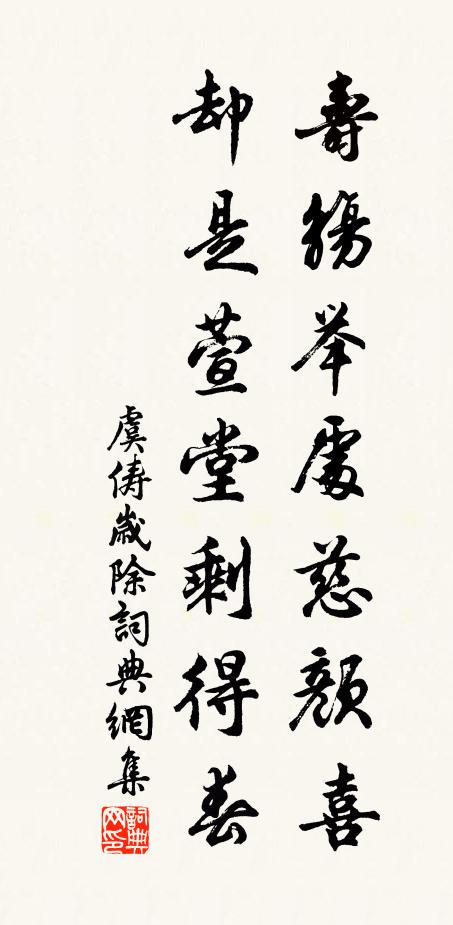 壽觴举處慈顏喜
却是萱堂剩得春
虞儔歲除詞典網集
詞典网印